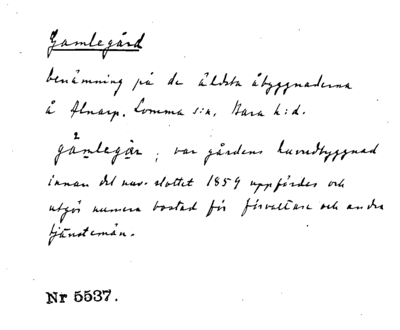 Gamlegård
benämning på de äldsta åbyggnaderna
å Alnarp. Lomma s:n, Bara h:d.
gamlegår, var gårdens huvudbyggnad
innan det nuv. slottet 1859 uppfördes och
utgör numera bostad för förvaltare och andra
tjänstemän.
Nr 5537.